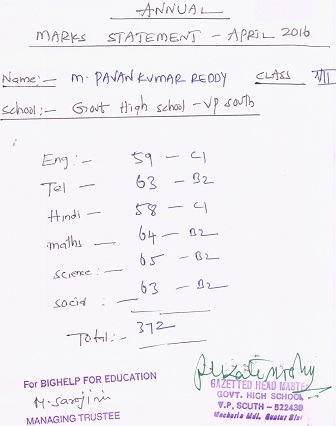 ANNUAL
MARKS STATEMENT - APRIL 2016
Name:- M. PAVAN KUMAR REDDY CLASS VIII
School:- Govt High school - VP south
Eng:- 59 - C1
Tel - 63 - B2
Hindi - 58 - C1
maths - 64 - B2
science:- 65 - B2
social: - 63 - B2
Total:- 372
For BIGHELP FOR EDUCATION
M. Sarojini
MANAGING TRUSTEE
GAZETTED HEAD MASTER
GOVT. HIGH SCHOOL
V.P. SOUTH - 522439
Macherla Mdl, Guntur Dist